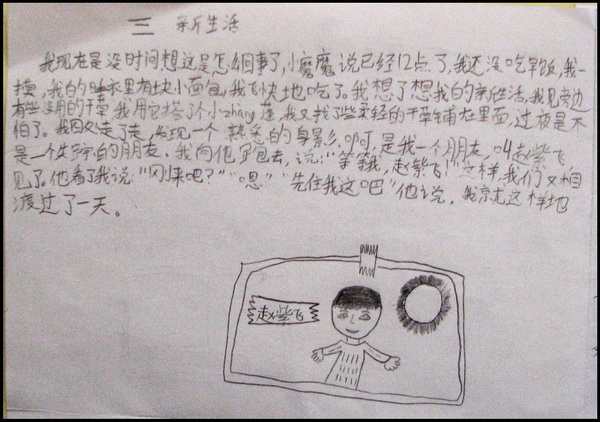 三 新生活
我现在是没时间想这是怎么回事了,小魔魔说已经12点了,我还没吃早饭,我一
摸,我的睡衣里有块小面包,我飞快地吃了。我想了想我的新生活,我见旁边
有些没用的干草,我用它搭了个小zhàng蓬,我又找了些柔轻的干草铺在里面,过夜是不
怕了。我四处走了走,发现一个熟悉的身影。啊!是我一个朋友,叫赵紫飞,
是一个失踪的朋友。我向他跑去,说:"等等我,赵紫飞!"这样,我们又相
见了。他看了我说:"刚来吧?" "嗯" "先住我这吧"他说。我就这样地
渡过了一天。
赵紫飞